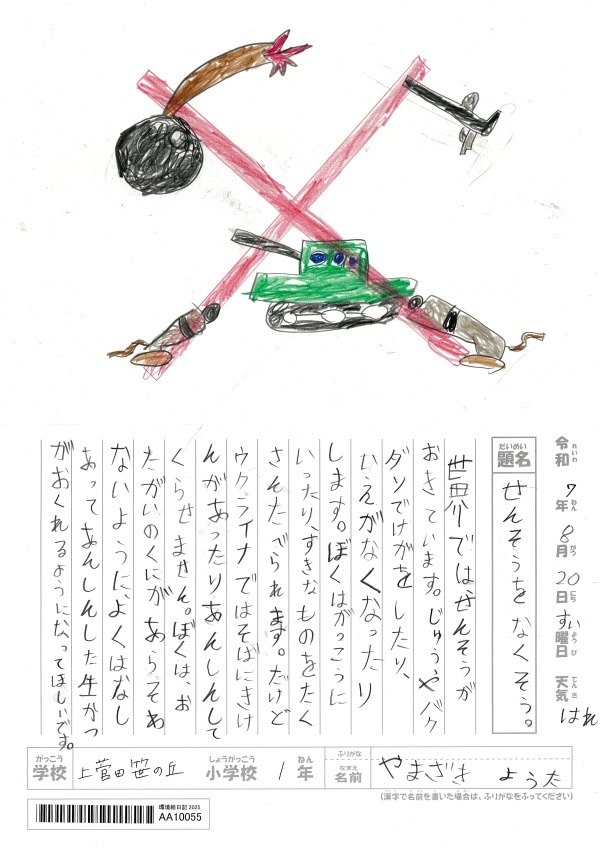 令和7年8月20日すい曜日 天気 はれ
れいわ ねん がつ にち ようび てんき
だいめい
題名 せんそうをなくそう。
世界ではせんそうが
おきています。じゅうやバク
ダンでけがをしたり、
いえがなくなったり
します。ぼくはがっこうに
いったり、すきなものをたく
さんたべられます。だけど
ウクライナではそばにきけ
んがあったりあんしんして
くらせません。ぼくは、お
たがいのくにがあらそわ
ないように、よくはなし
あってあんしんした生かつ
がおくれるようになってほしいです。
がっこう しょうがっこう ねん なまえ ふりがな
学校 上菅田笹の丘 小学校 1年 名前 やまざき ようた
(漢字で名前を書いた場合は、ふりがなをふってください)
環境絵日記 2025
AA10055